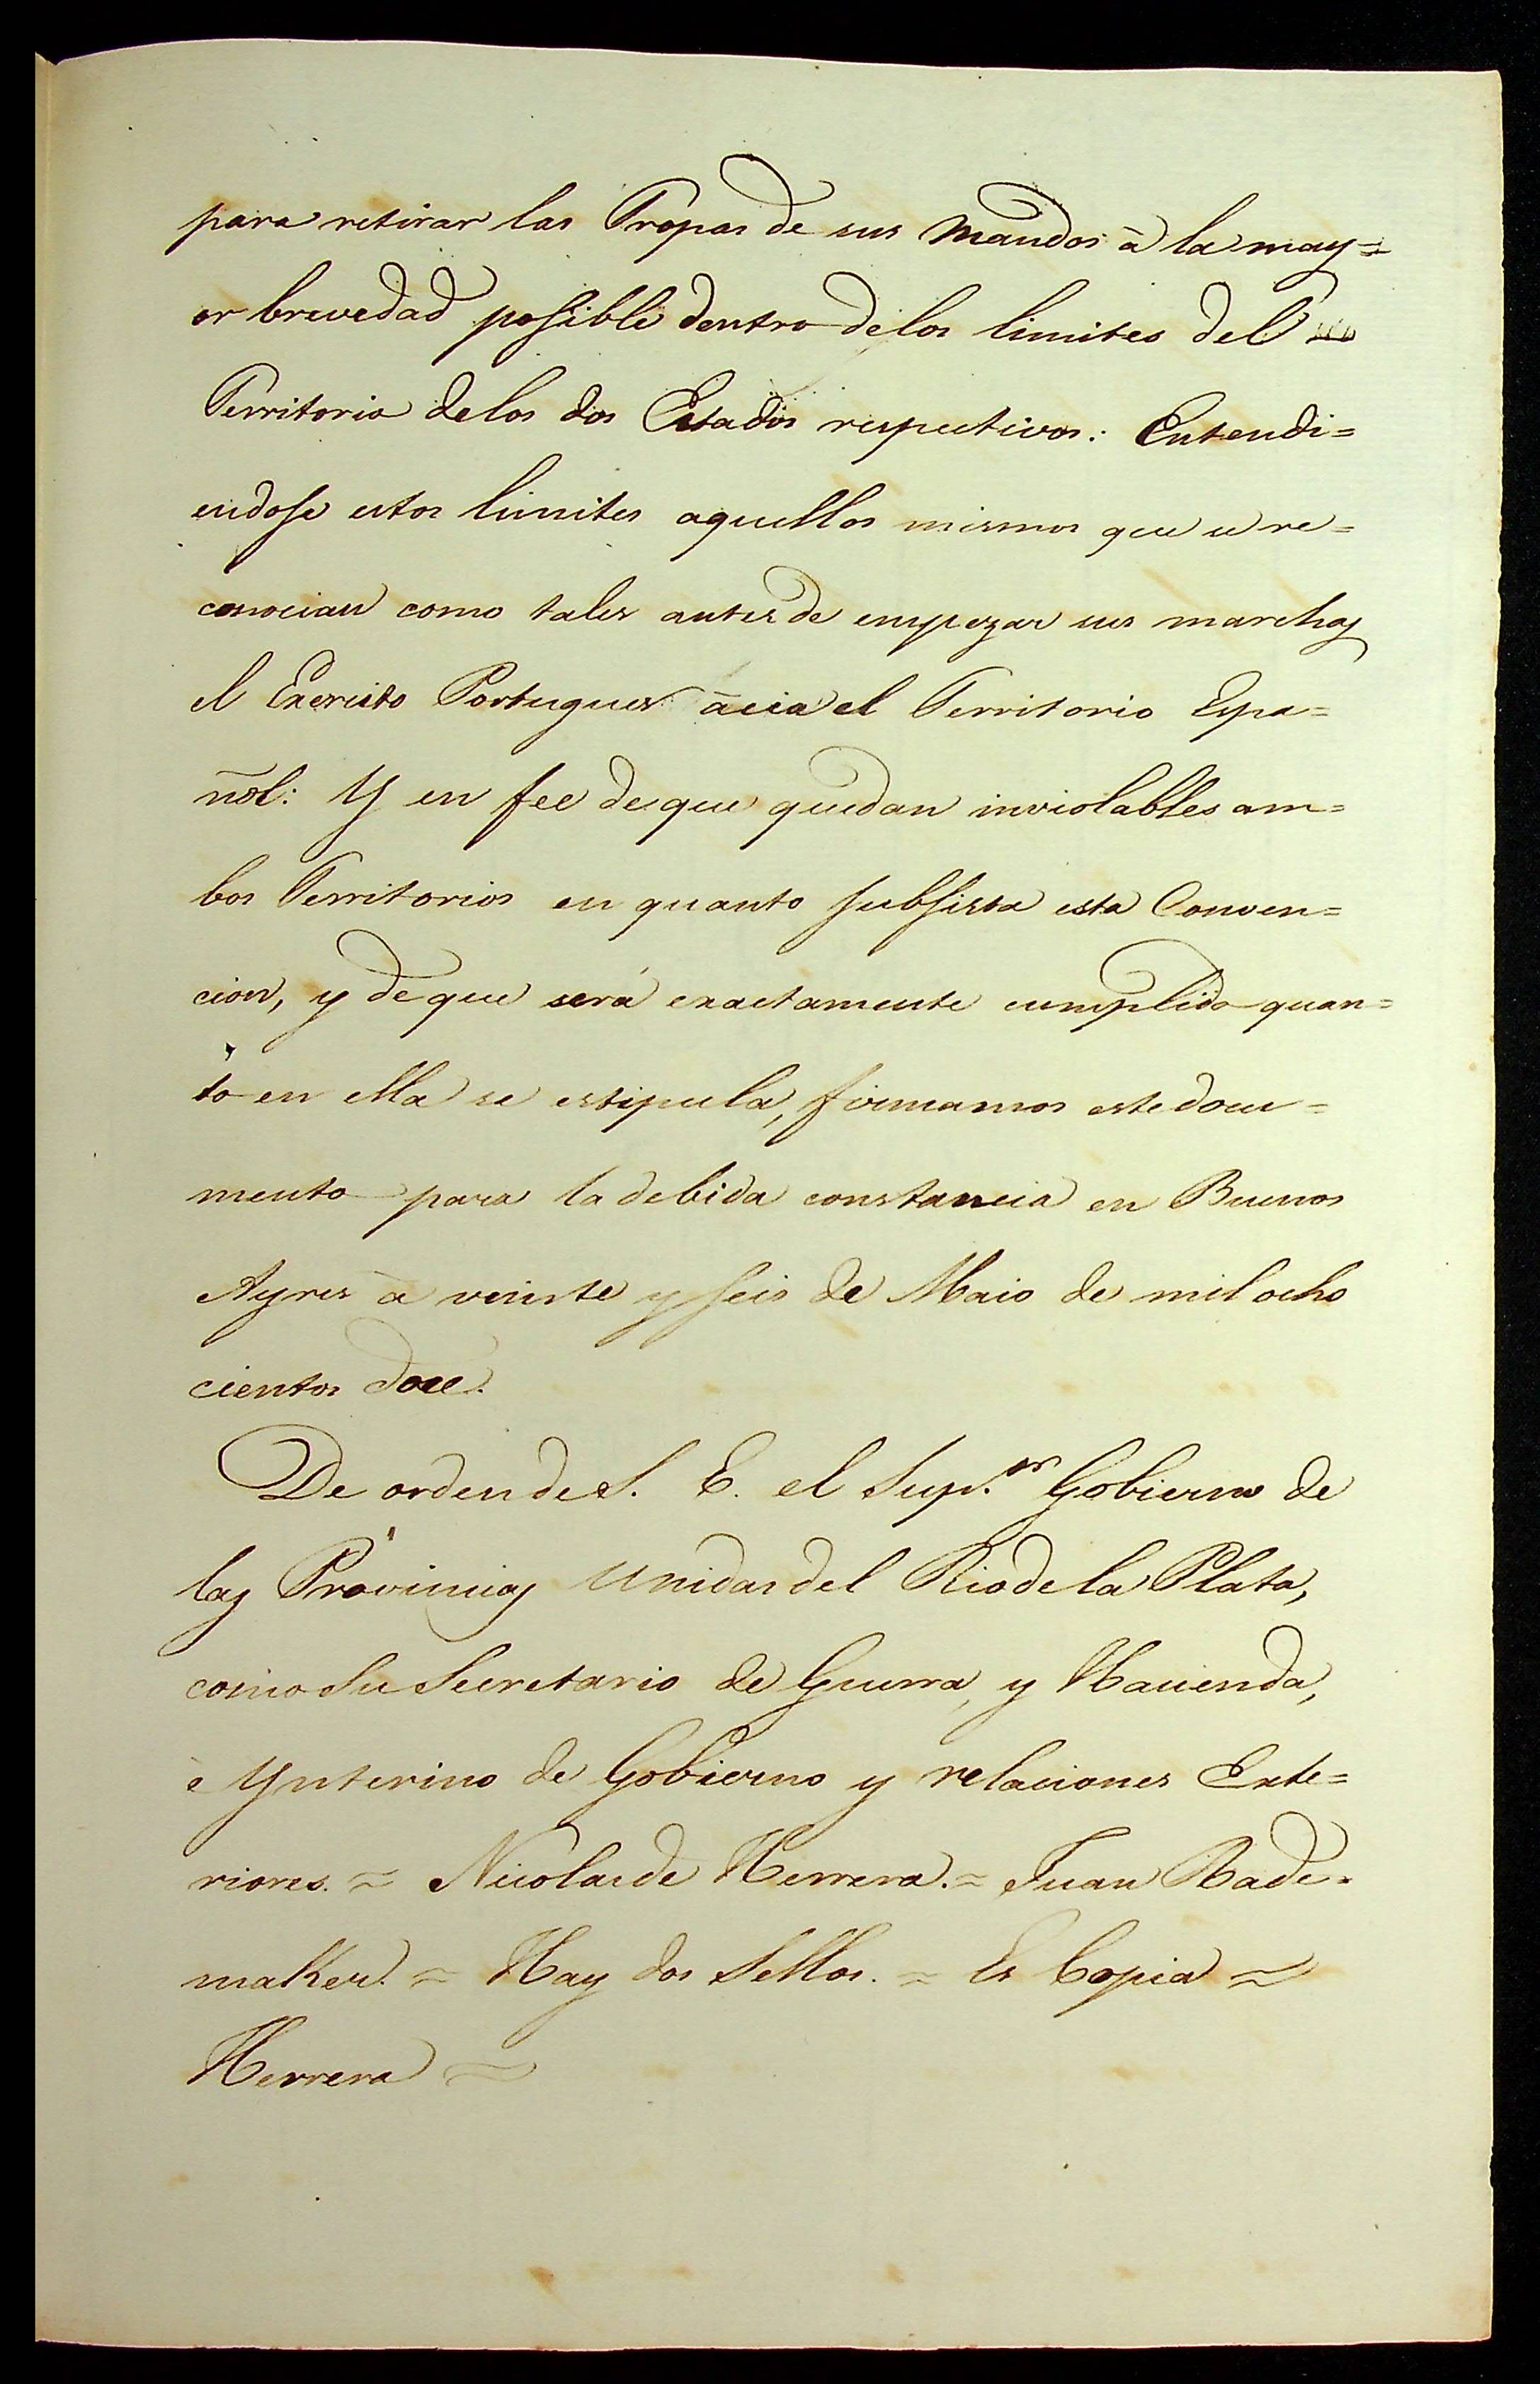 para retirar las Tropas de sus Mandos à la may=
or brevedad posible dentro delos limites del
Territorio delos dos Estados respectivos: Entendi=
endose estos limites aquellos mismos que se re=
conocian como tales antes de empezar sus marchas
el Exercito Portugues àcia el Territorio Espa=
ñol: Y en fee deque quedan inviolables am=
bos Territorios en quanto subsista esta Conven=
cion, y de que será exactamente cumplido quan=
to en ella se estipula, firmamos este docu=
mento para la debida constancia en Buenos
Ayres à veinte y seis de Maio de mil ocho
cientos doce.
De orden de S. E. el Sup.or Gobierno de
las Provincias Unidas del Rio de la Plata,
como Su Secretario de Guerra, y Hacienda,
è Ynterino de Gobierno y relaciones Exte=
riores. = Nicolas de Herrera. = Juan Rade=
maker. = Hay dos Sellos. = Es Copia =
Herrera =